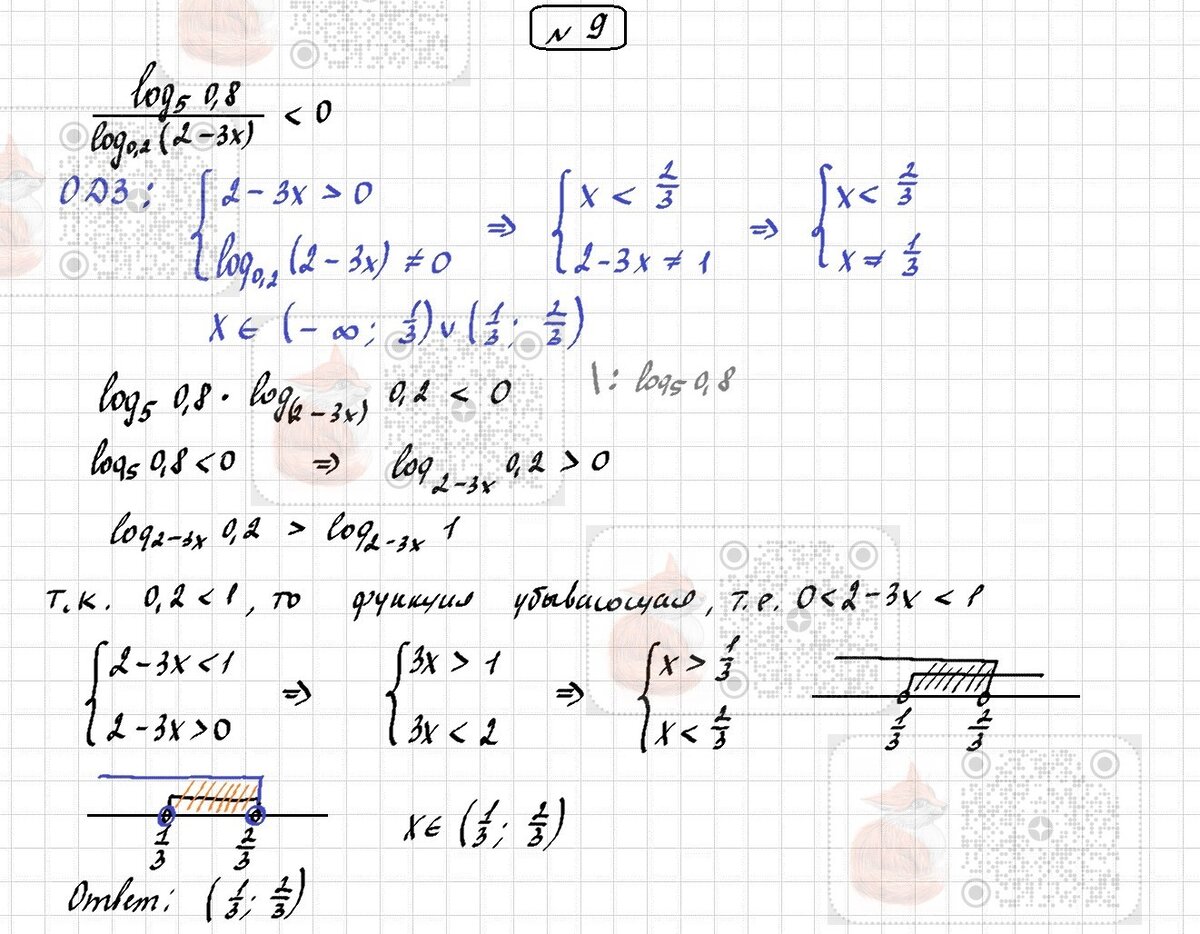 № 9
log₅ 0,8 / log₀,₂ (2 – 3x) < 0
ОДЗ: { 2 – 3x > 0; log₀,₂ (2 – 3x) ≠ 0 ⇒ { x < 2/3; 2 – 3x ≠ 1 ⇒ { x < 2/3; x ≠ 1/3
x ∈ (– ∞; 1/3) ∪ (1/3; 2/3)
log₅ 0,8 · log₍₂₋₃ₓ₎ 0,2 < 0 | : log₅ 0,8
log₅ 0,8 < 0 ⇒ log₂₋₃ₓ 0,2 > 0
log₂₋₃ₓ 0,2 > log₂₋₃ₓ 1
т.к. 0,2 < 1, то функция убывающая, т.е. 0 < 2 – 3x < 1
{ 2 – 3x < 1; 2 – 3x > 0 ⇒ { 3x > 1; 3x < 2 ⇒ { x > 1/3; x < 2/3
1/3 2/3
1/3 2/3
x ∈ (1/3; 2/3)
Ответ: (1/3; 2/3)